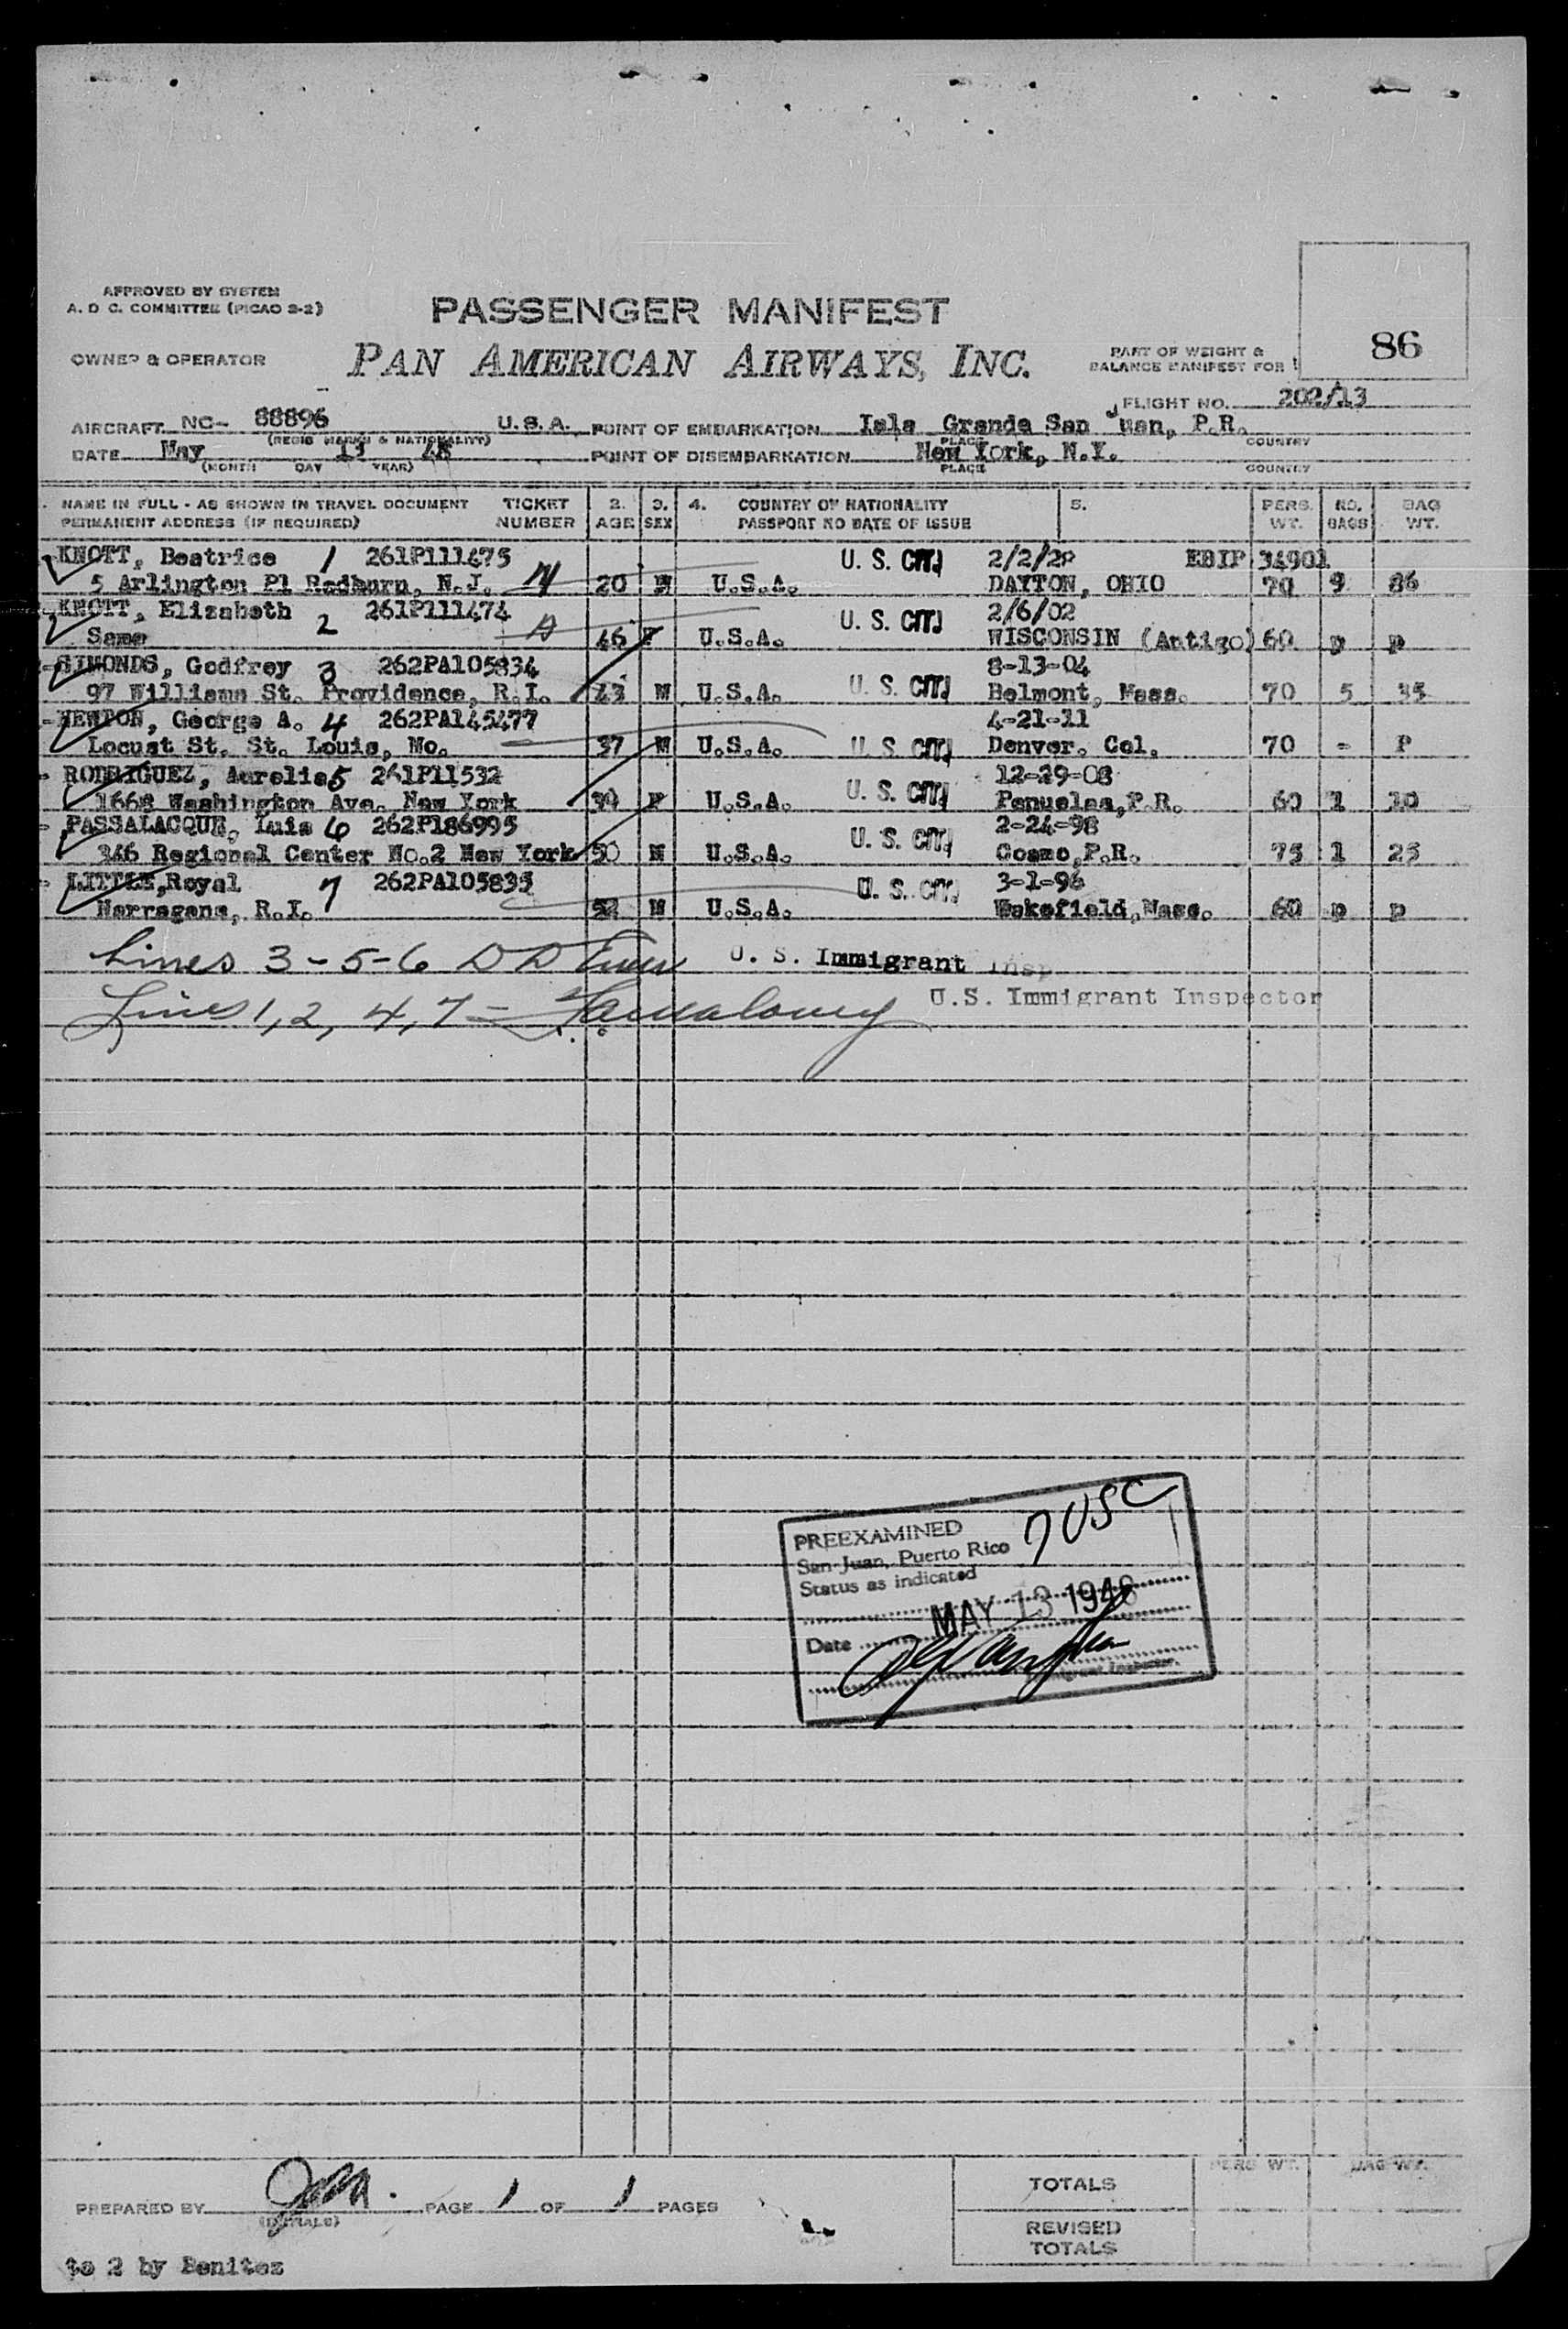 APPROVED BY SYSTEM
A. D C. COMMITTEE (PICAO 3-2)
86
PASSENGER MANIFEST
OWNER & OPERATOR
PAN AMERICAN AIRWAYS, INC.
PART OF WEIGHT &
BALANCE MANIFEST FOR
FLIGHT NO. 202/13
AIRCRAFT NC- 88896 U.S.A. POINT OF EMBARKATION Isla Grande San Juan, P.R.
(REGIS MARKS & NATIONALITY) PLACE COUNTRY
DATE May 13 48 POINT OF DISEMBARKATION New York, N.Y.
(MONTH DAY YEAR) PLACE COUNTRY
NAME IN FULL - AS SHOWN IN TRAVEL DOCUMENT TICKET 2. 3. 4. COUNTRY OF NATIONALITY 5. PERS. NO. BAG
PERMANENT ADDRESS (IF REQUIRED) NUMBER AGE SEX PASSPORT NO DATE OF ISSUE WT. BAGS WT.
KNOTT, Beatrice 1 261P111475 U. S. CIT. 2/2/28 EBIP 34901
5 Arlington Pl Radburn, N.J. 20 U.S.A. DAYTON, OHIO 70 9 86
KNOTT, Elizabeth 2 261P111474 U. S. CIT. 2/6/02
Same 46 F U.S.A. WISCONSIN (Antigo) 60 p p
SIMONDS, Godfrey 3 262PA105834 8-13-04
97 Williams St. Providence, R.I. 43 M U.S.A. U. S. CIT. Belmont, Mass. 70 5 35
NEWTON, George A. 4 262PA145477 4-21-11
Locust St. St. Louis, Mo. 37 M U.S.A. U. S. CIT. Denver. Col. 70 - P
RODRIGUEZ, Aurelia 5 261P11532 12-29-08
1668 Washington Ave. New York F U.S.A. U. S. CIT. Penuelas, P.R. 60 1 10
PASSALACQUE, Luis 6 262P186995 2-24-98
346 Regional Center No.2 New York 50 M U.S.A. U. S. CIT. Coamo, P.R. 75 1 25
LITTLE, Royal 7 262PA105835 U. S. CIT. 3-1-96
Narragans, R.I. 52 M U.S.A. Wakefield, Mass. 60 p p
Lines 3-5-6 U. S. Immigrant Insp
Lines 1, 2, 4, 7 - U.S. Immigrant Inspector
PREEXAMINED 7 USC
San Juan, Puerto Rico
Status as indicated
Date MAY 13 1948
Immigrant Inspector
PERS WT. BAG WT.
TOTALS
PREPARED BY PAGE 1 OF 1 PAGES
(INITIALS)
REVISED
TOTALS
to 2 by Benitez